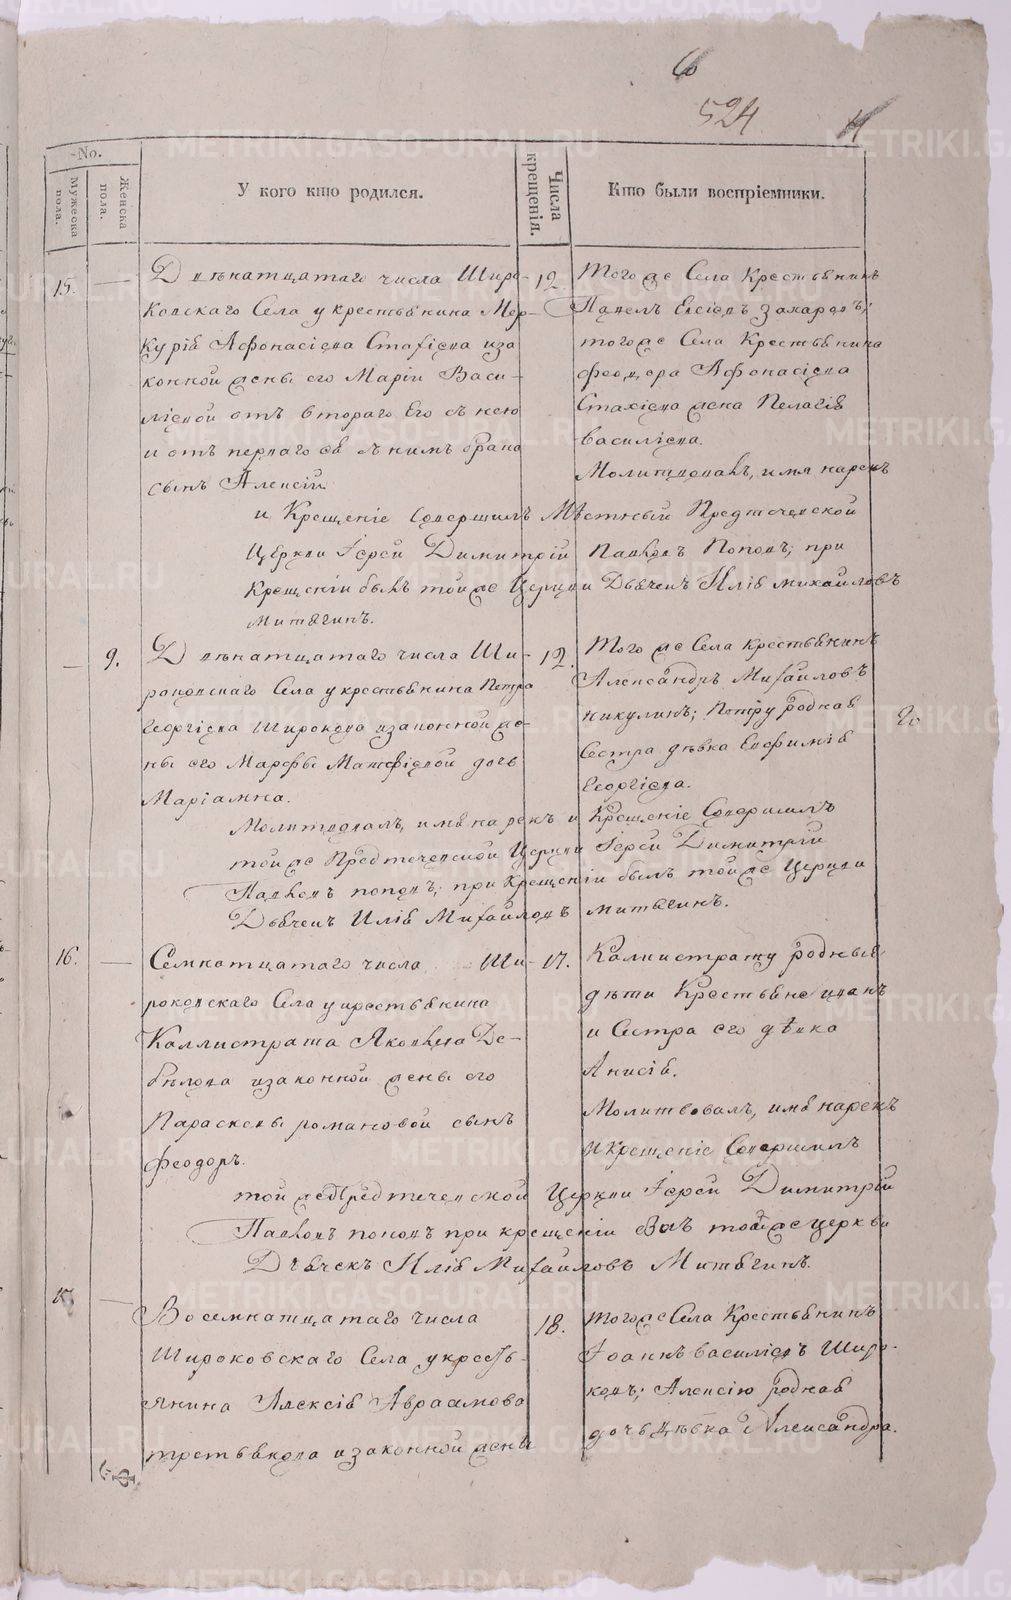 524
No.
Мужеска пола.
Женска пола.
У кого кто родился.
Числа крещенія.
Кто были воспріемники.
15. — Двѣнатцатаго числа Широ-
ковскаго Села у крестьянина Мер-
курія Афонасіева Стахіева иза
конной жены его Маріи Васи-
ліевой отъ втораго Его съ нею
и отъ перваго ея съ нимъ брака
сынъ Алексій
12. Тогоже Села Крестьянинъ
Павелъ Евсіевъ Захаровъ;
тогоже Села Крестьянина
Феодора Афонасіева
Стахіева жена Пелагія
Василіева.
Молитвовалъ, имя нарекъ
и Крещеніе Совершилъ Мѣстный Предтечевской
Церкви Іерей Димитрій Павловъ Поповъ; при
Крещеніи былъ тойже Церкви Дьячекъ Илія Михаиловъ
Митягинъ.
— 9. Двѣнатцатаго числа Ши-
роковскаго Села у крестьянина Петра
Георгіева Широкова изаконной же-
ны его Марфы Матфіевой дочь
Маріамна.
12. Тогоже Села крестьянинъ
Александръ Михайловъ
Никулинъ; Петру родная
Сестра дѣвка Евфимія
Георгіева.
Молитвовалъ, имя нарекъ и Крещеніе Совершилъ
тойже Предтечевской Церкви Іерей Димитрій
Павловъ поповъ; при Крещеніи былъ тойже Церкви
Дьячекъ Илія Михайловъ Митягинъ.
16. — Семнатцатаго числа Ши-
роковскаго Села у крестьянина
Каллистрата Яковлева Де-
бѣлова изаконной жены его
Параскевы романовой сынъ
Феодоръ.
17. Калистрату родные
дѣти Крестьяне иванъ
и Сестра его дѣвка
Анисія.
Молитвовалъ, имя нарекъ
и Крещеніе Совершилъ
тойже Предтечевской Церкви Іерей Димитрій
Павловъ поповъ при крещеніи былъ тойже церкви
Дьячекъ Илія Михаиловъ Митягинъ.
17. — Восемнатцатаго числа
Широковскаго Села у кресть-
янина Алексія Авраамова
третьякова изаконной жены
18. Тогоже Села Крестьянинъ
Іоаннъ василіевъ Широ-
ковъ; Алексію родная
дочь дѣвка Александра.
METRIKI.GASO-URAL.RU